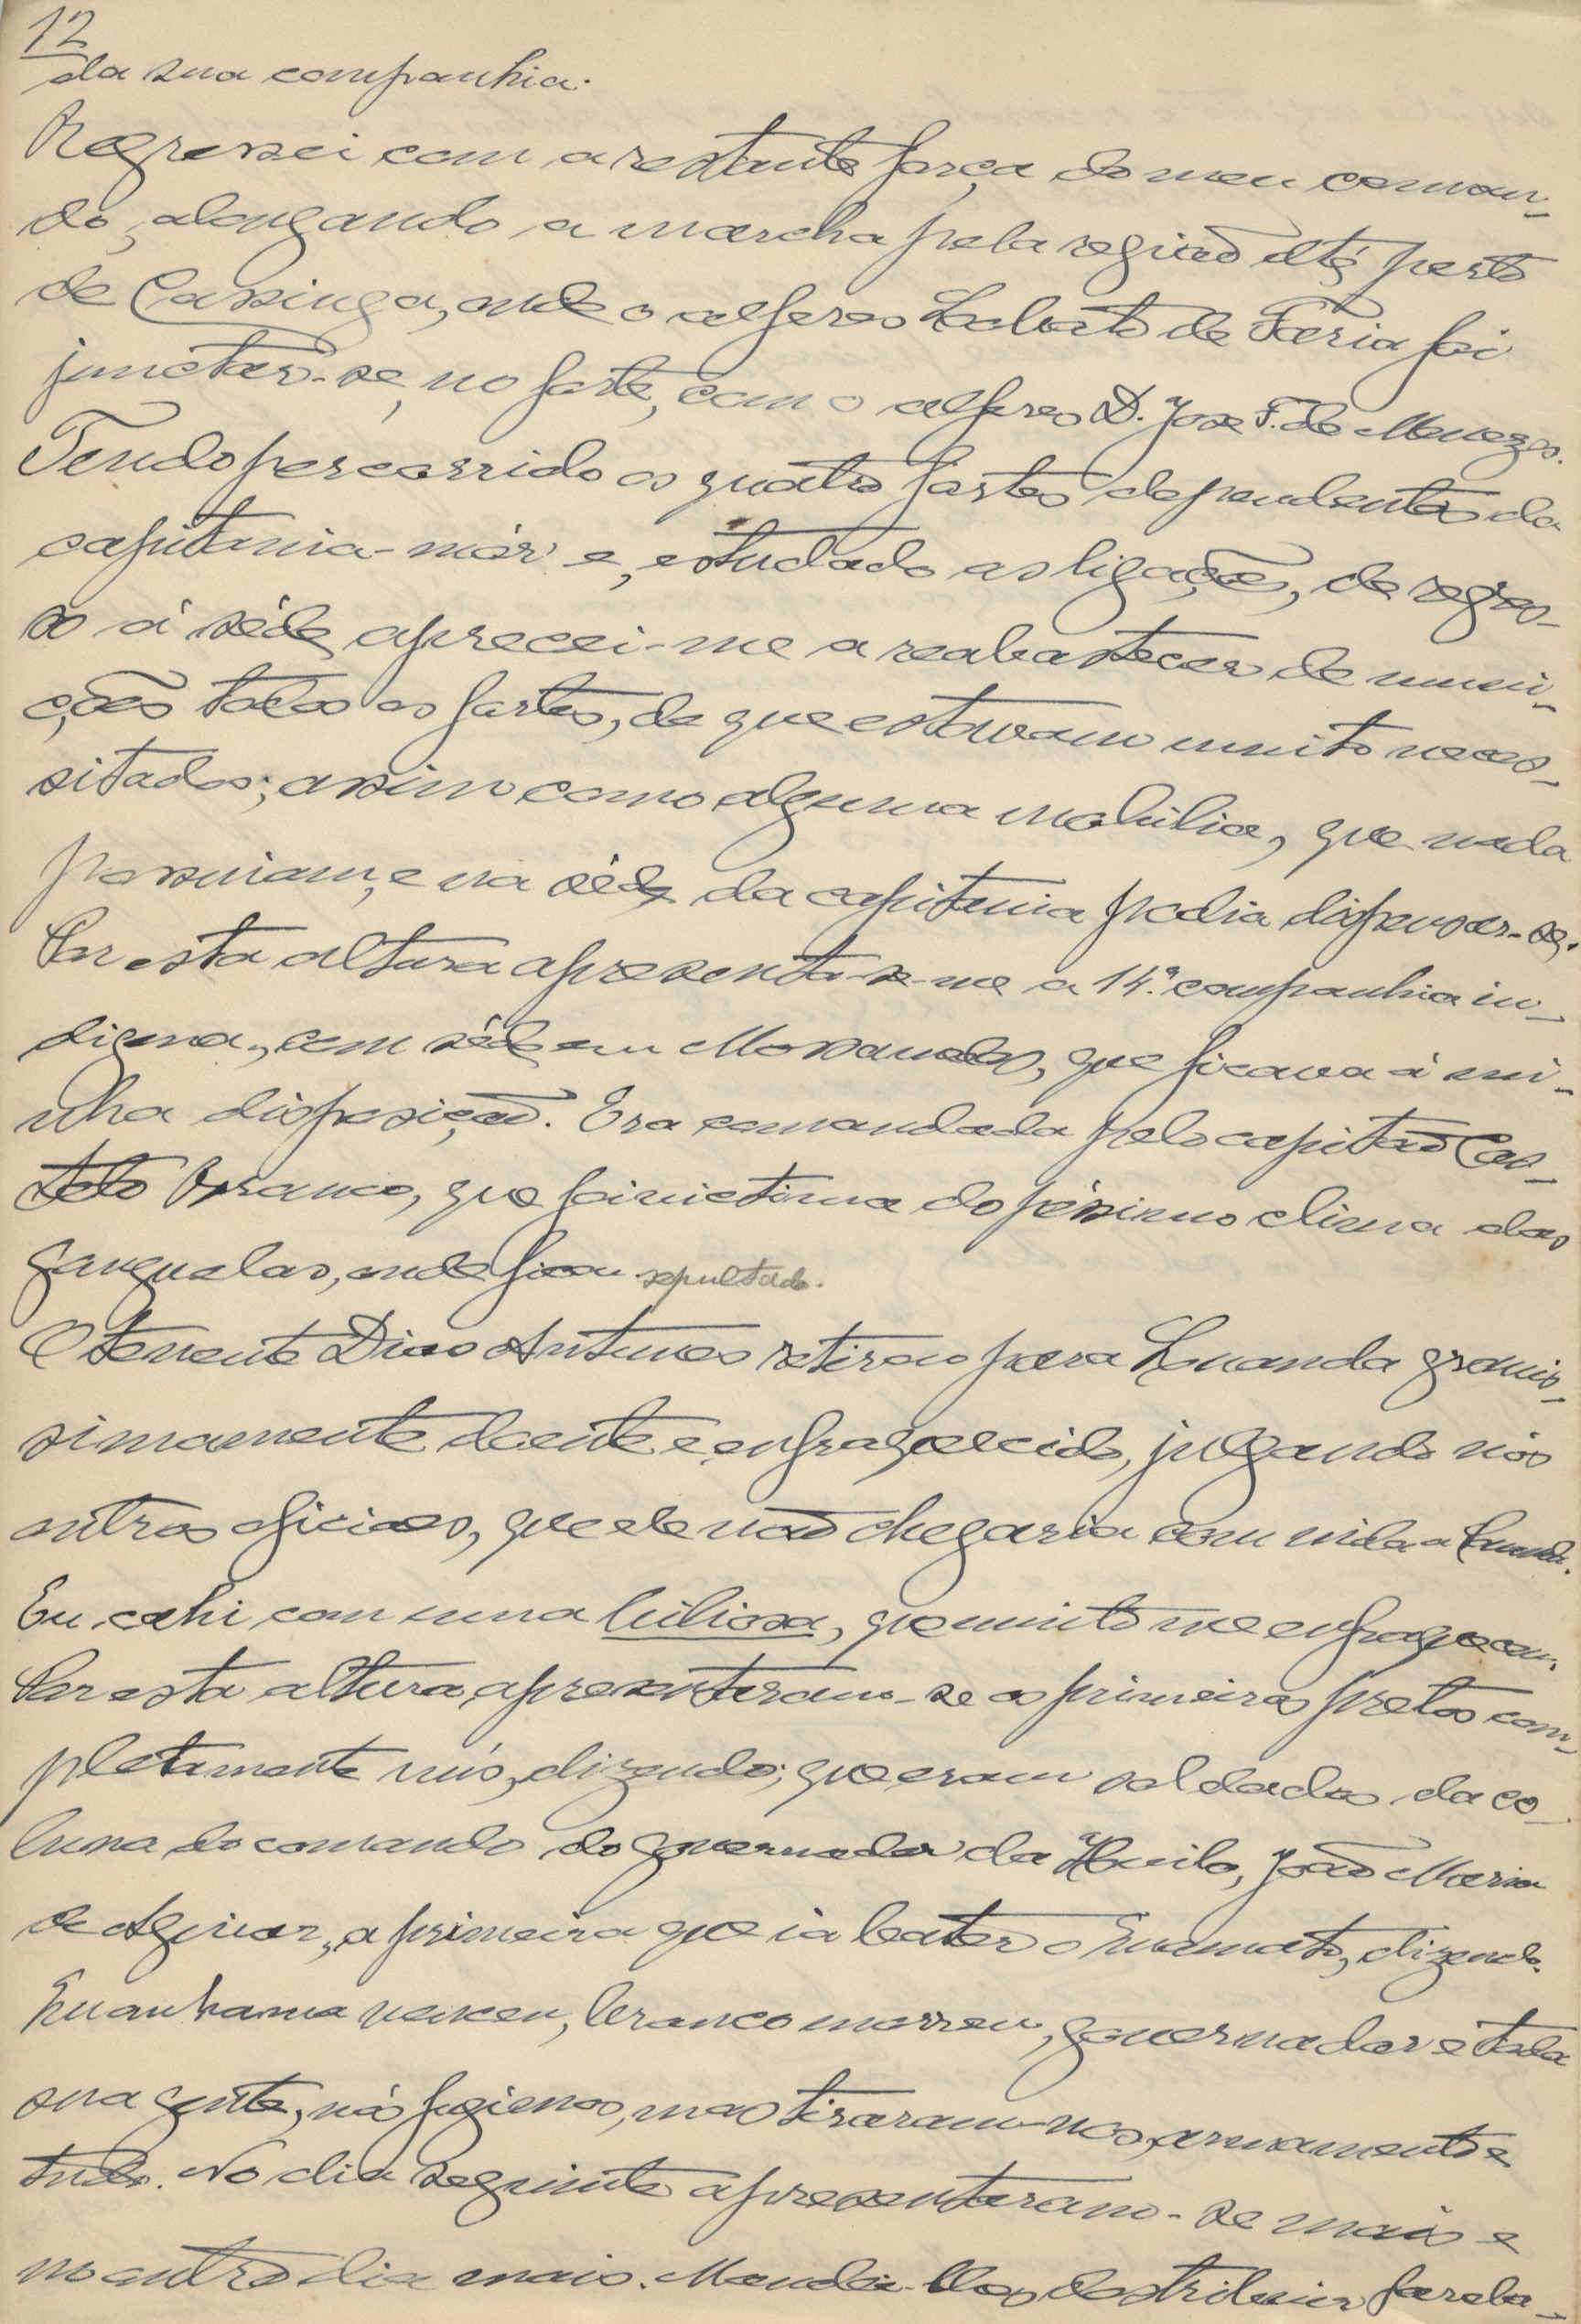 12
da sua companhia.
Regressei com a restante força do meu coman-
do, alongando a marcha pela região até perto
de Cassinga, onde o alferes Lobato de Faria foi
junctar-se, no forte, com o alferes D. José F. de Menezes.
Tendo percorrido os quatro fortes dependentes da
capitania-mór e, estudado as ligações, de regres-
so á séde apressei-me a reabastecer de muni-
ções todos os fortes, de que estavam muito neces-
sitados; assim como alguma mobilia, que nada
possuiam, e na séde da capitania podia dispensar-se.
Por esta altura apresenta-se-me a 14.ª companhia in-
digena, com séde em Mossamedes, que ficava á mi-
nha disposição. Era comandada pelo capitão Cas-
telo Branco, que foi victima do péssimo clima das
ganguelas, onde ficou sepultado.
O tenente Dias Antunes retirou para Luanda gravis-
simamente doente e enfraquecido, julgando nós
outros oficiaes, que ele não chegaria com vida a Luanda.
Eu cahi com uma biliosa, que muito me enfraqueceu.
Por esta altura, apresentaram-se os primeiros pretos com-
pletamente nús, dizendo; que eram soldados da co-
luna do comando do governador da Huila, João Maria
de Aguiar, a primeira que ia bater o Cuamato, dizendo.
Cuanhama venceu, branco morreu, governador e toda
sua gente, nós fugimos, mas tiraram-nos, armamento e
tudo. No dia seguinte apresentaram-se mais e
no outro dia mais. Mandei-llos destribuir farda-